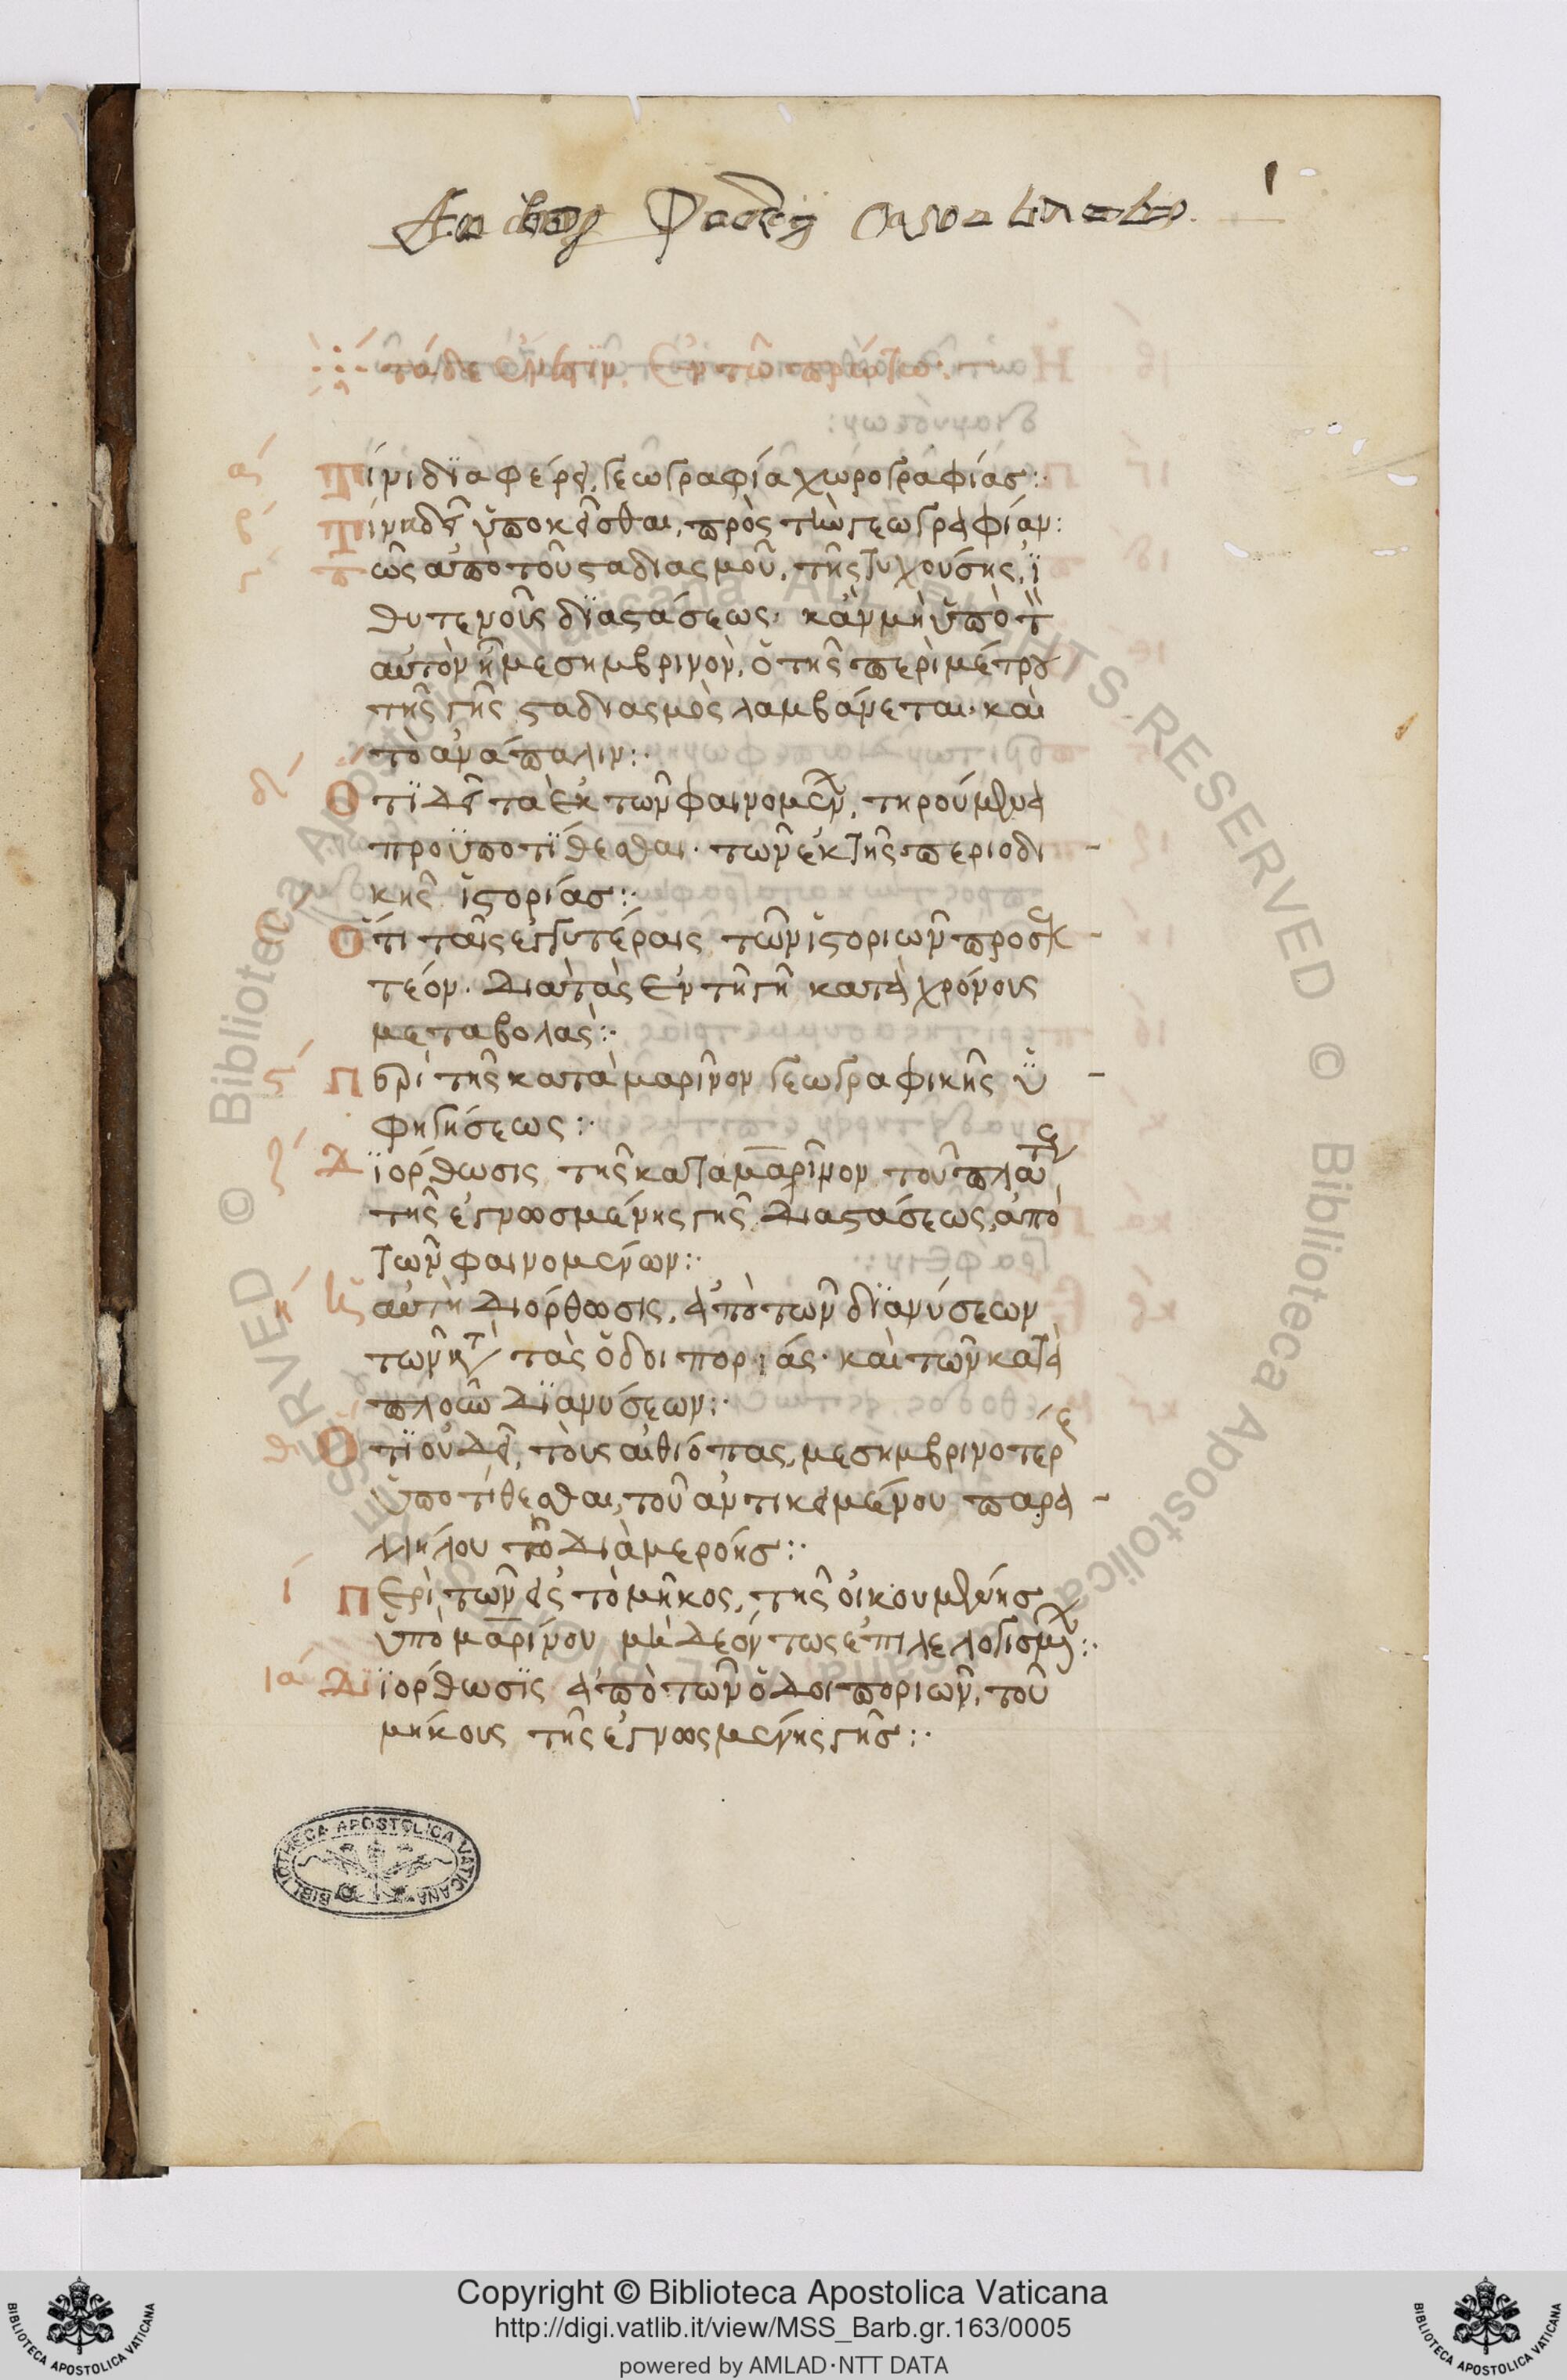 1
τάδε ἔνεστιν ἐν τῶ πρώτω
α Τίνι διαφέρει γεωγραφία χωρογραφίας:·
β Τίνα δεῖ ὑποκεῖσθαι, πρὸς τὴν γεωγραφίαν:
γ πῶς ἀπὸ τοῦ σταδιασμοῦ, τῆς τυχούσης, ἰ
θυτενοῦς διαστάσεως· κἂν μὴ ὑπὸ τ
αὐτὸν ῇ μεσημβρινὸν, ὁ τῆς περιμέτρου
τῆς γῆς σταδιασμὸς λαμβάνεται· καὶ
τὸ ἀνάπαλιν:·
δ Ὅτι δεῖ τὰ ἐκ τῶν φαινομένων, τηρούμενα
προϋποτίθεσθαι· τῶν ἐκ τῆς περιοδι
κῆς ἱστορίας:·
ε Ὅτι ταῖς ἐγγυτέραις τῶν ἱστοριῶν προσεκ
τέον· διὰ τὰς ἐν τῆ γῆ κατὰ χρόνους
μεταβολὰς:·
ϛ Περὶ τῆς κατὰ μαρῖνον γεωγραφικῆς ὑ
φηγήσεως:·
ζ Διόρθωσις τῆς κατὰ μαρῖνον τοῦ πλάτους
τῆς ἐγνωσμένης γῆς διαστάσεως, ἀπὸ
τῶν φαινομένων:·
η Ἡ αὐτὴ διόρθωσις, ἀπὸ τῶν διανύσεων
τῶν κατὰ τὰς ὁδοιπορίας· καὶ τῶν κατὰ
πλοῦν διανύσεων:·
θ Ὅτι οὐ δεῖ, τοὺς αἰθίοπας, μεσημβρινοτέρους
ὑποτίθεσθαι, τοῦ ἀντικειμένου παρα
λλήλου τῶ διὰ μερόης:·
ι Περὶ τῶν εἰς τὸ μῆκος, τῆς οἰκουμένης
ὑπὸ μαρίνου μὴ δεόντως ἐπιλελογισμένων:·
ια Διόρθωσις ἀπὸ τῶν ὁδοιποριῶν, τοῦ
μήκους τῆς ἐγνωσμένης γῆς:·
BIBLIOTHECA APOSTOLICA VATICANA
© Biblioteca Apostolica Vaticana ALL RIGHTS RESERVED
Copyright © Biblioteca Apostolica Vaticana
http://digi.vatlib.it/view/MSS_Barb.gr.163/0005
powered by AMLAD·NTT DATA
BIBLIOTECA APOSTOLICA VATICANA
BIBLIOTECA APOSTOLICA VATICANA